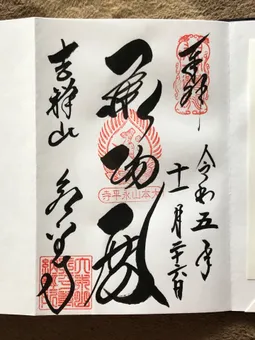 奉拝
令和五年
十一月二十六日
承陽殿
大本山永平寺
吉祥山
永平寺